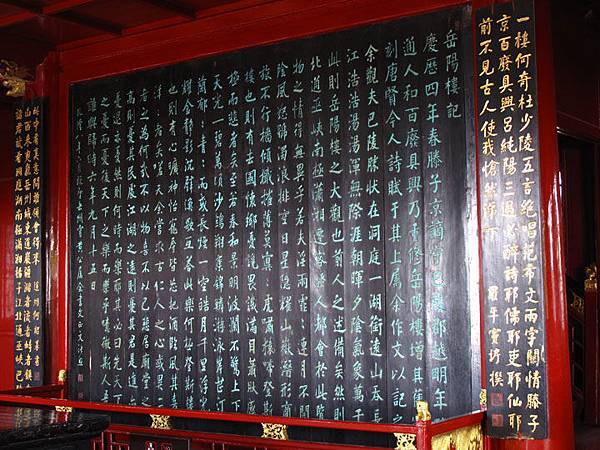 一樓何奇杜少陵五言絕唱范希文兩字關情滕子
京百廢具興呂純陽三過必醉詩耶儒耶吏耶仙耶
前不見古人使我愴然涕下
羅平竇垿撰
岳陽樓記
慶歷四年春滕子京謫守巴陵郡越明年
通人和百廢具興乃重修岳陽樓增其舊
刻唐賢今人詩賦于其上屬余作文以記之
余觀夫巴陵勝狀在洞庭一湖銜遠山吞長
江浩浩湯湯渾無際涯朝暉夕陰氣象萬千
此則岳陽樓之大觀也前人之述備矣然則
北通巫峽南極瀟湘遷客騷人都會於此覽
物之情得無異乎若夫霪雨霏霏連月不開
陰風怒號濁浪排空日星隱耀山嶽潛形商
旅不行檣傾楫摧薄暮冥冥虎嘯猿啼登斯
樓也則有去國懷鄉憂讒畏譏滿目蕭然感
極而悲者矣至若春和景明波瀾不驚上下
天光一碧萬頃沙鷗翔集錦鱗游泳岸芷汀
蘭郁郁青青而或長煙一空皓月千里浮光
耀金靜影沉璧漁歌互答此樂何極登斯樓
也則有心曠神怡寵辱皆忘把酒臨風其喜
洋洋者矣嗟夫余嘗求古仁人之心或異二
者之為何哉不以物喜不以己悲居廟堂之
憂則憂其民處江湖之遠則憂其君是進亦
憂退亦憂然則何時而樂耶其必曰先天下
之憂而憂後天下之樂而樂乎噫微斯人吾
誰與歸時六年九月十五日
中有真意問誰領會得來 道州何紹基書
山西來爽氣岳州城東道巖疆瀦者流者峙者鎮
諸君試看洞庭湖南極瀟湘揚子江北通巫峽巴陵